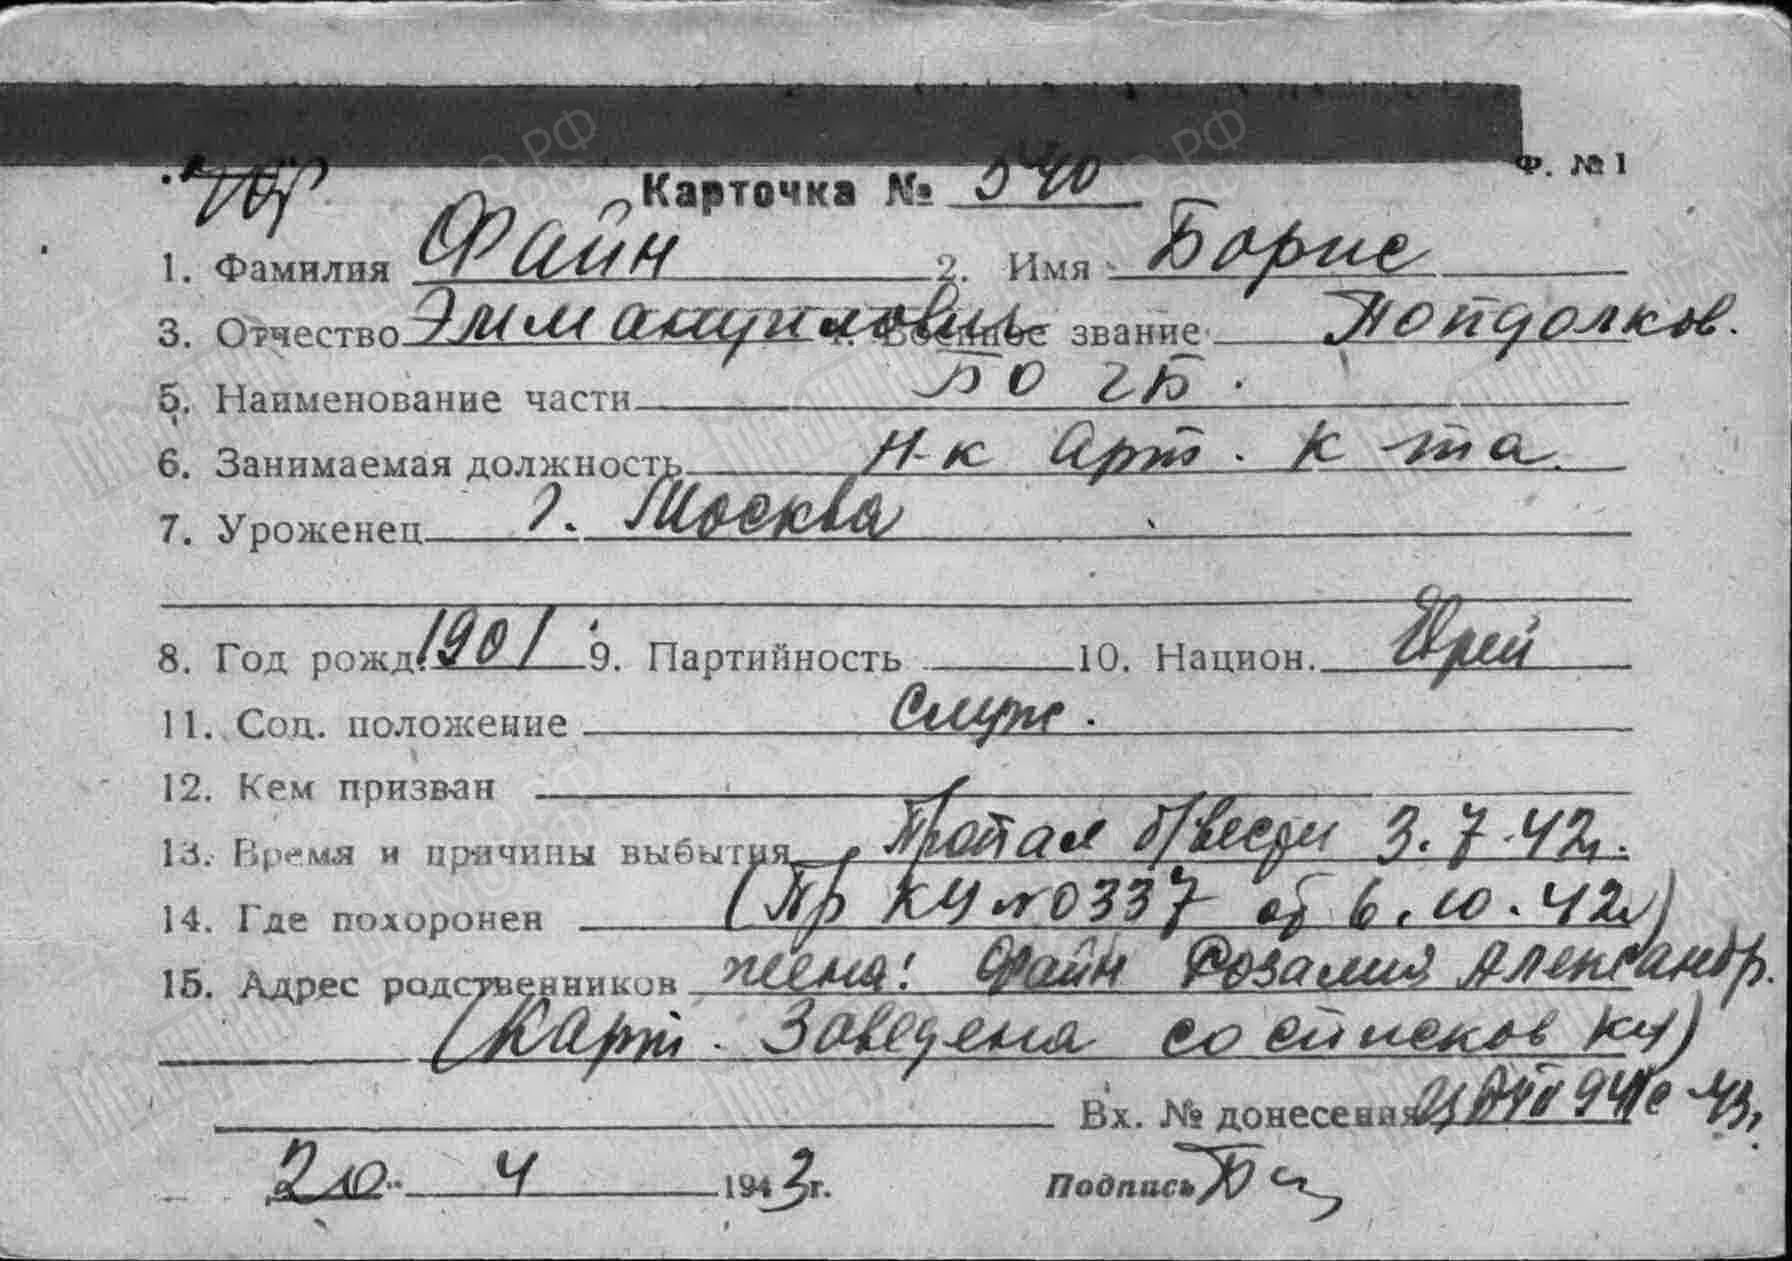 Ф. № 1
Карточка № 540
1. Фамилия Файн 2. Имя Борис
3. Отчество Эммануилович 4. Военное звание Подполков.
5. Наименование части БО ГБ.
6. Занимаемая должность Н-к Арт. К та.
7. Уроженец г. Москва
8. Год рожд. 1901 9. Партийность 10. Национ. Еврей
11. Соц. положение Служ.
12. Кем призван
13. Время и причины выбытия Пропал б/вести 3.7.42г.
14. Где похоронен (Пр КЧ №0337 от 6.10.42г)
15. Адрес родственников жена: Файн Розалия Александр.
(Карт. Заведена со списков КЧ)
Вх. № донесения 43г.
20 " 4 1943г. Подпись